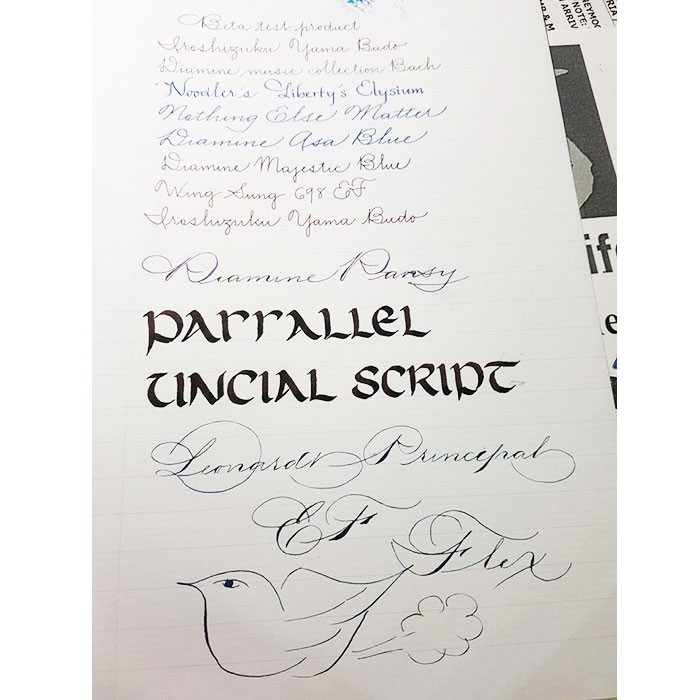 Beta test product
Iroshizuku Yama Budo
Diamine music collection Bach
Noodler's Liberty's Elysium
Nothing Else Matter
Diamine Asa Blue
Diamine Majestic Blue
Wing Sung 698 EF
Iroshizuku Yama Budo
Diamine Pansy
Parrallel
Uncial Script
Leonardt Principal
EF Flex
& M
NOTE:
ARRIV